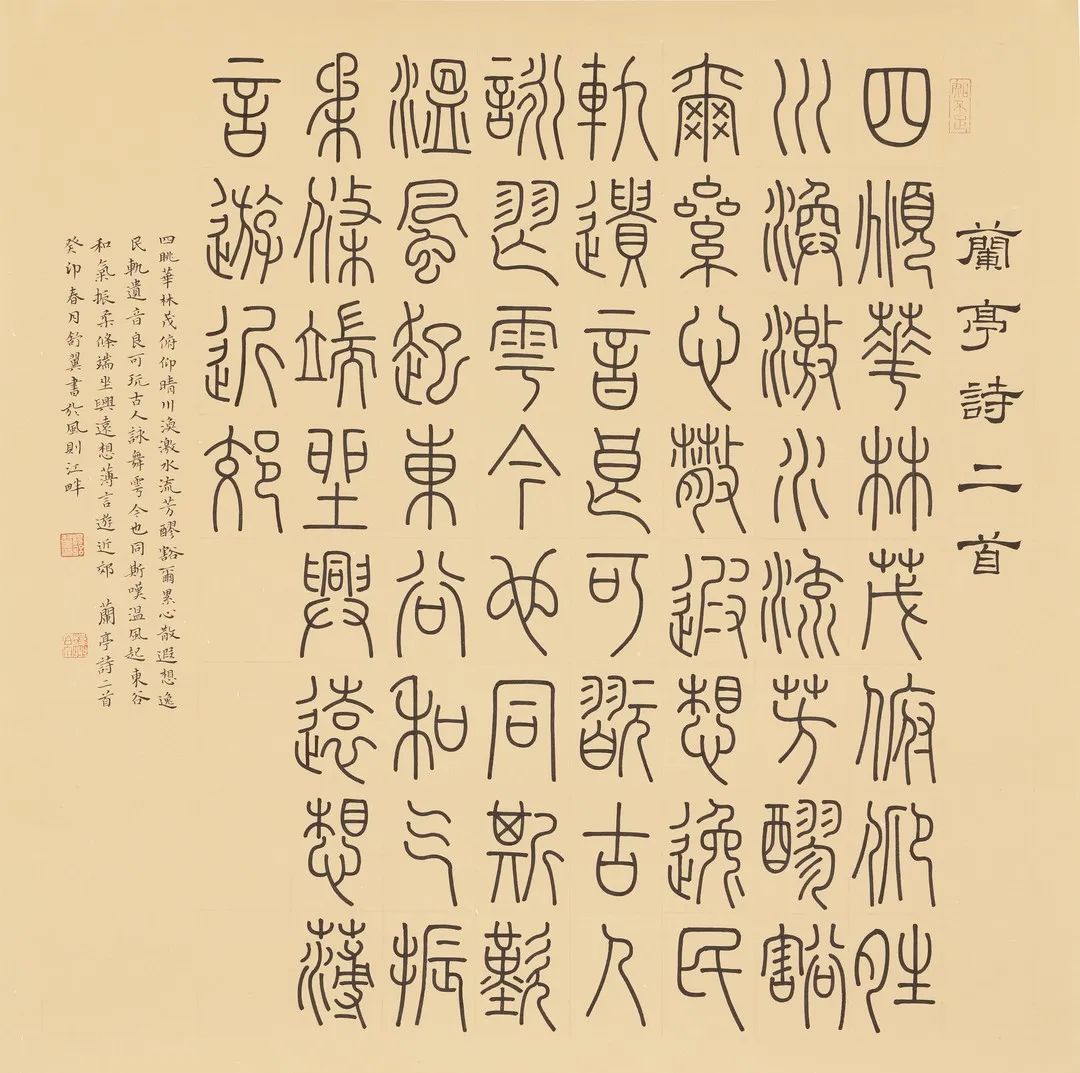 蘭亭詩二首
四眺華林茂俯仰晴
川渙激水流芳醪豁
爾纍心散遐想逸民
軌遺音良可翫古人
詠舞雩今也同斯歎
溫風起東谷和气振
柔條端坐興遠想薄
言遊近郊
四眺華林茂俯仰晴川渙激水流芳醪豁爾累心散遐想逸
民軌遺音良可玩古人詠舞雩今也同斯嘆溫風起東谷
和氣振柔條端坐興遠想薄言遊近郊 蘭亭詩二首
癸卯春月舒翼書於風則江畔